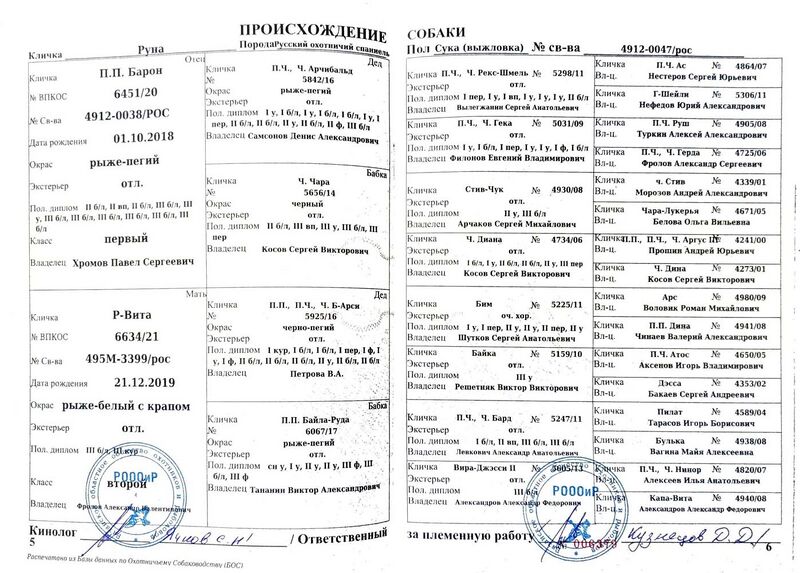 ПРОИСХОЖДЕНИЕ
Кличка Руна Порода Русский охотничий спаниель
Отец
Кличка П.П. Барон
№ ВПКОС 6451/20
№ Св-ва 4912-0038/РОС
Дата рождения 01.10.2018
Окрас рыже-пегий
Экстерьер отл.
Пол. диплом II б/л, II вп, II б/л, III б/л, III
у, III б/л, III б/л, III б/л, III б/л, III б/л, III
б/л
Класс первый
Владелец Хромов Павел Сергеевич
Дед
Кличка П.Ч., Ч. Арчибальд
№ 5842/16
Окрас рыже-пегий
Экстерьер отл.
Пол. диплом I у, I б/л, I у, I б/л, I б/л, I у, I
пер, II б/л, II б/л, II у, II б/л, II ф, III б/л
Владелец Самсонов Денис Александрович
Бабка
Кличка Ч. Чара
№ 5656/14
Окрас черный
Экстерьер отл.
Пол. диплом II б/л, III вп, III у, III б/л, III
пер
Владелец Косов Сергей Викторович
Мать
Кличка Р-Вита
№ ВПКОС 6634/21
№ Св-ва 495М-3399/рос
Дата рождения 21.12.2019
Окрас рыже-белый с крапом
Экстерьер отл.
Пол. диплом III б/л, III кур
Класс второй
Владелец Фролов Александр Валентинович
РОООиР
Дед
Кличка П.П., П.Ч., Ч. Б-Арси
№ 5925/16
Окрас черно-пегий
Экстерьер отл.
Пол. диплом I кур, I б/л, I б/л, I пер, I ф, I
у, I ф, II б/л, II б/л, II б/л, II у, II б/л, II б/л
Владелец Петрова В.А.
Бабка
Кличка П.П. Байла-Руда
№ 6067/17
Окрас рыже-пегий
Экстерьер отл.
Пол. диплом сн у, I у, II у, II у, III ф, III
б/л, III ф
Владелец Тананин Виктор Александрович
Кинолог / Ответственный
5
Распечатано из Базы данных по Охотничьему Собаководству (БОС)
СОБАКИ
Пол Сука (выжловка) № св-ва 4912-0047/рос
Кличка П.Ч., Ч. Рекс-Шмель № 5298/11
Экстерьер отл.
Пол. диплом I пер, I у, I вп, I у, I у, I у, II б/л
Владелец Вылегжанин Сергей Анатольевич
Кличка П.Ч., Ч. Гека № 5031/09
Экстерьер отл.
Пол. диплом I у, I б/л, I пер, I у, I у, I ф, I б/л
Владелец Филонов Евгений Владимирович
Кличка Стив-Чук № 4930/08
Экстерьер отл.
Пол. диплом II у, III б/л
Владелец Арчаков Сергей Михайлович
Кличка Ч. Диана № 4734/06
Экстерьер отл.
Пол. диплом I б/л, I у, II б/л, II б/л, II у, III пер
Владелец Косов Сергей Викторович
Кличка Бим № 5225/11
Экстерьер оч. хор.
Пол. диплом I у, I пер, II у, II у, II пер, II у
Владелец Шутков Сергей Анатольевич
Кличка Байка № 5159/10
Экстерьер отл.
Пол. диплом III у
Владелец Решетняк Виктор Викторович
Кличка П.Ч., Ч. Бард № 5247/11
Экстерьер отл.
Пол. диплом I б/л, II вп, III б/л, III б/л
Владелец Левкович Анатолий Анатольевич
Кличка Вира-Джэсси II № 5605/13
Экстерьер отл.
Пол. диплом III б/л
Владелец Александров Александр Федорович
РОООиР
Кличка П.Ч. Ас № 4864/07
Вл-ц. Нестеров Сергей Юрьевич
Кличка Г-Шейли № 5306/11
Вл-ц. Нефедов Юрий Александрович
Кличка П.Ч. Руш № 4905/08
Вл-ц. Туркин Алексей Александрович
Кличка П.Ч., Ч. Герда № 4725/06
Вл-ц. Фролов Александр Сергеевич
Кличка ч. Стив № 4339/01
Вл-ц. Морозов Андрей Александрович
Кличка Чара-Лукерья № 4671/05
Вл-ц. Белова Ольга Вильевна
Кличка П.П., П.Ч., Ч. Аргус III № 4241/00
Вл-ц. Прошин Андрей Юрьевич
Кличка Ч. Дина № 4273/01
Вл-ц. Косов Сергей Викторович
Кличка Арс № 4980/09
Вл-ц. Воловик Роман Михайлович
Кличка П.П. Дина № 4941/08
Вл-ц. Чинаев Валерий Алексеевич
Кличка П.Ч. Атос № 4650/05
Вл-ц. Аксенов Игорь Владимирович
Кличка Дэсса № 4353/02
Вл-ц. Бакаев Сергей Андреевич
Кличка Пилат № 4589/04
Вл-ц. Тарасов Игорь Борисович
Кличка Булька № 4938/08
Вл-ц. Вагина Майя Алексеевна
Кличка П.Ч., Ч. Нинор № 4820/07
Вл-ц. Алексеев Илья Анатольевич
Кличка Капа-Вита № 4940/08
Вл-ц. Александров Александр Федорович
за племенную работу Кузнецов Д.Д. /
№ 006379
6